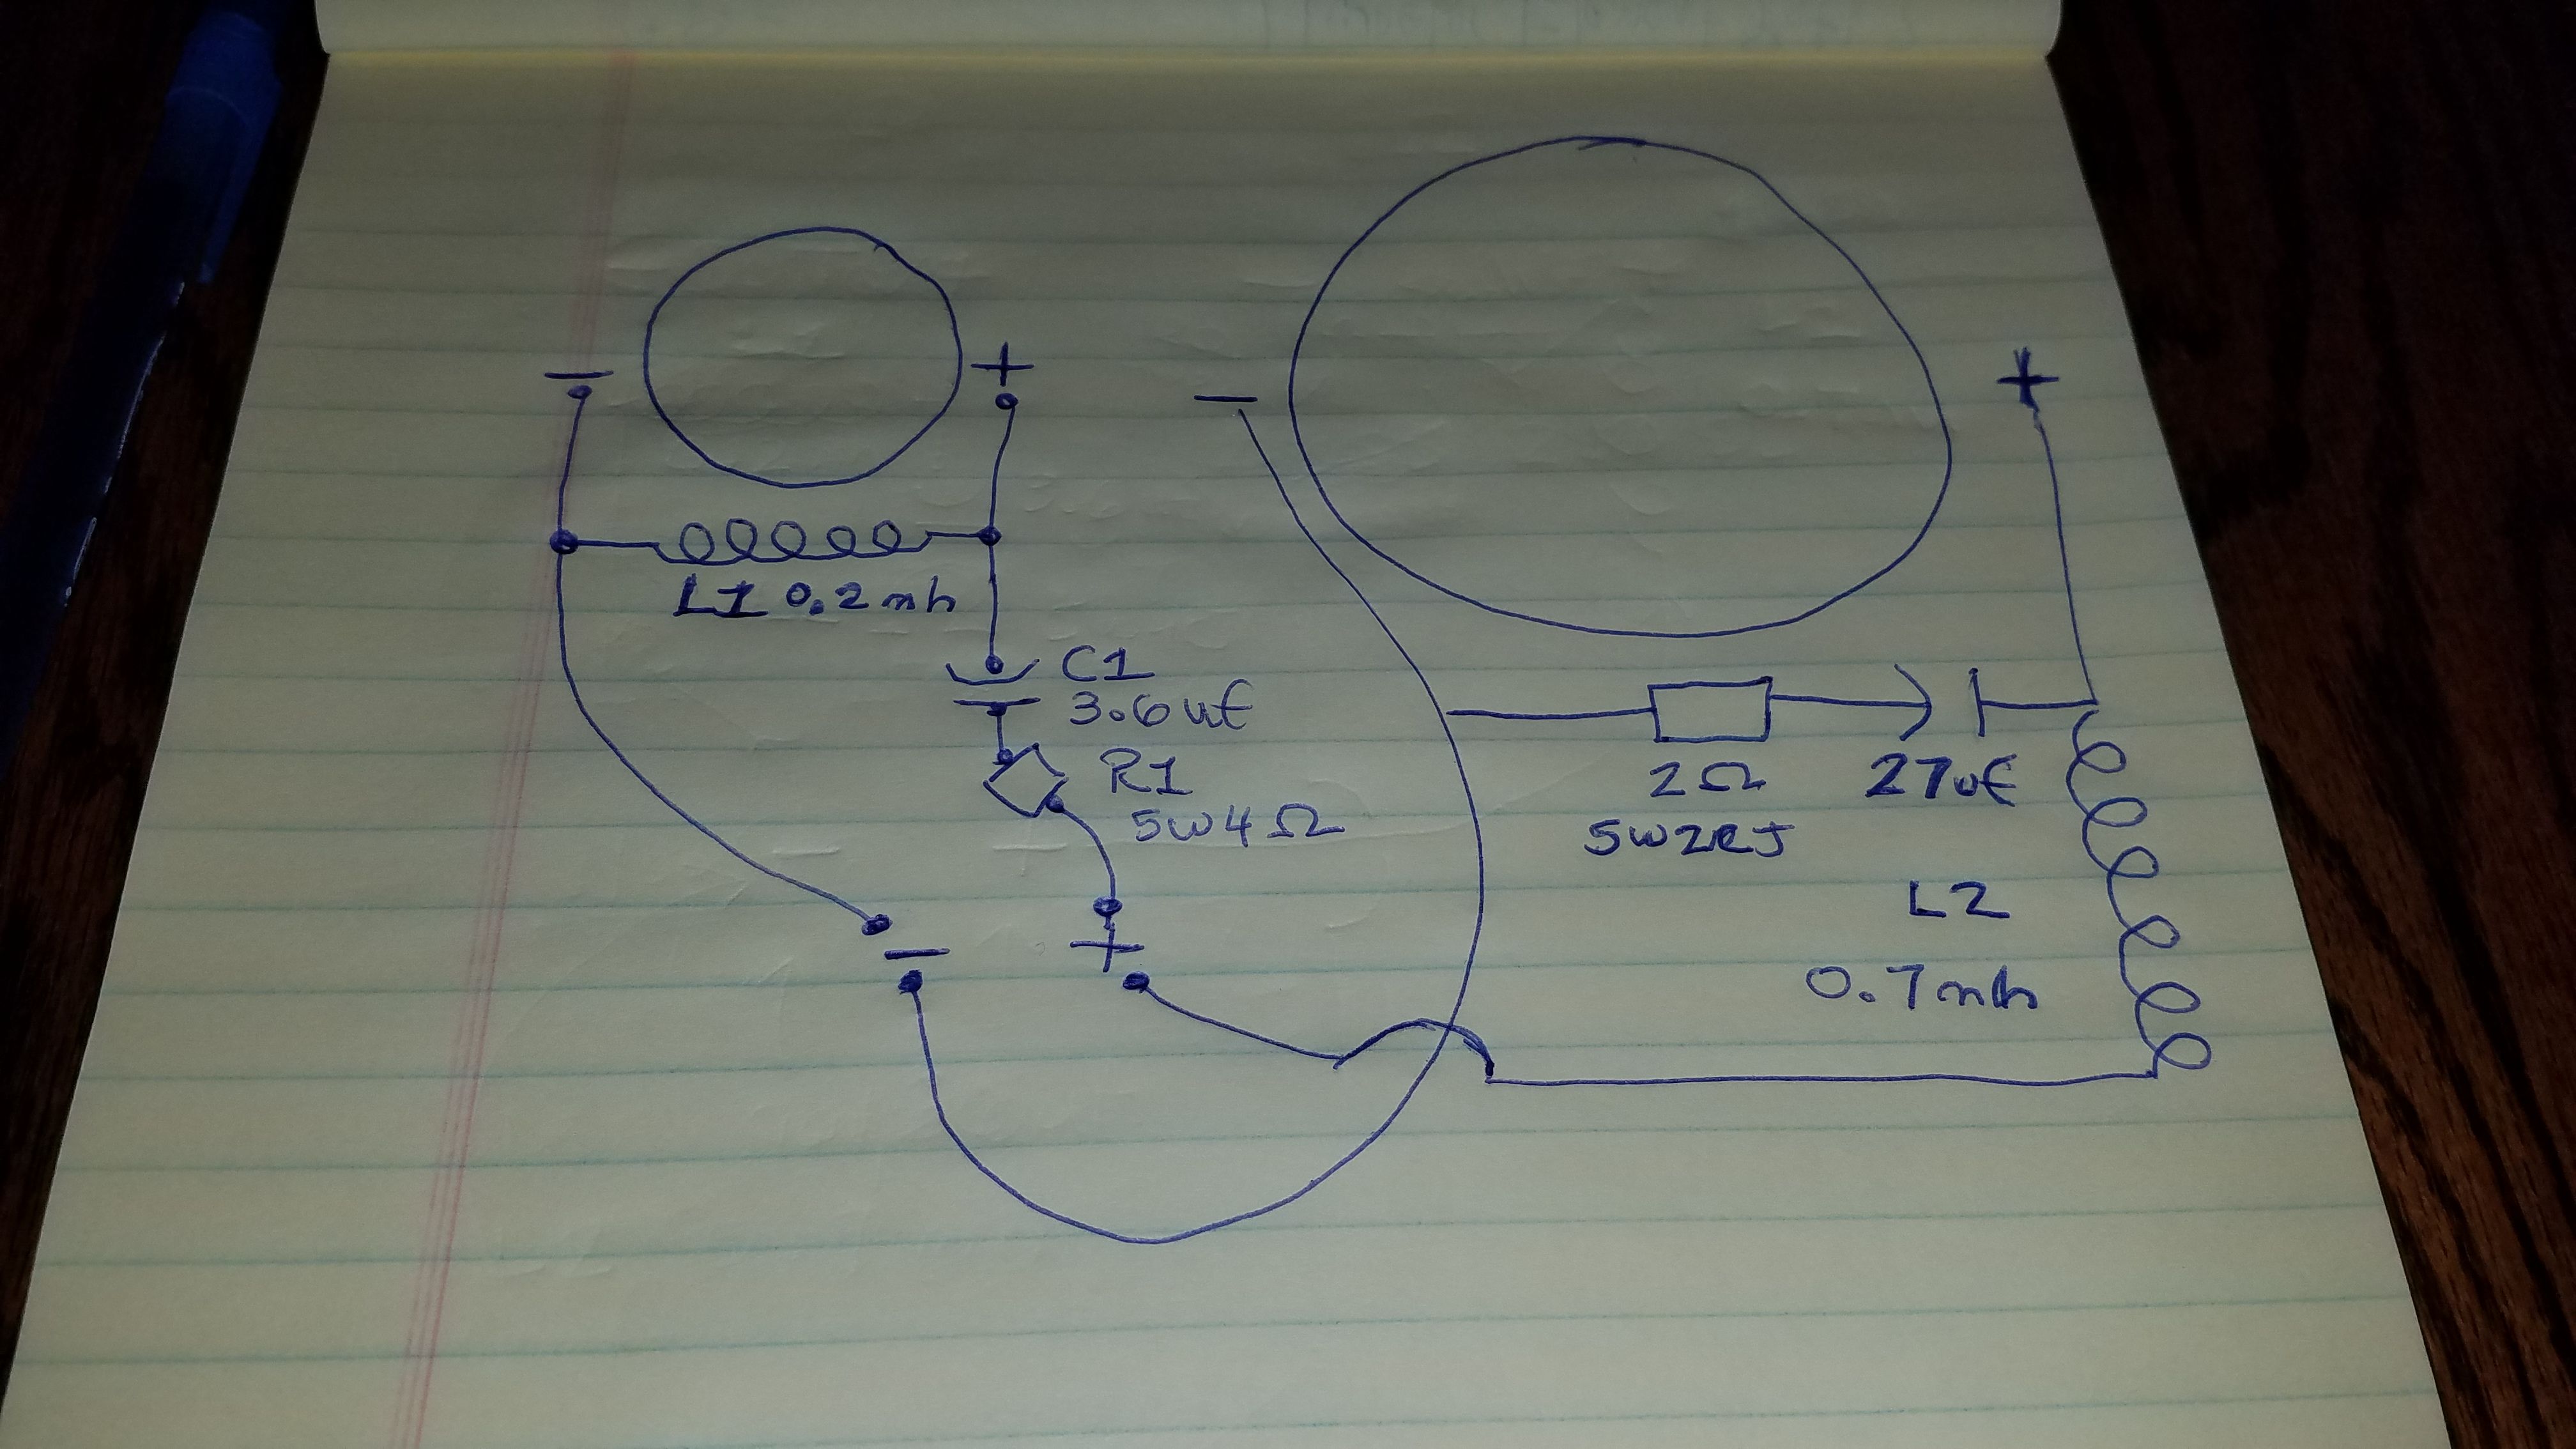 − + − +
L1 0.2mh
C1
3.6uf
R1
5W4Ω
− +
2Ω
5W2RJ
27uf
L2
0.7mh